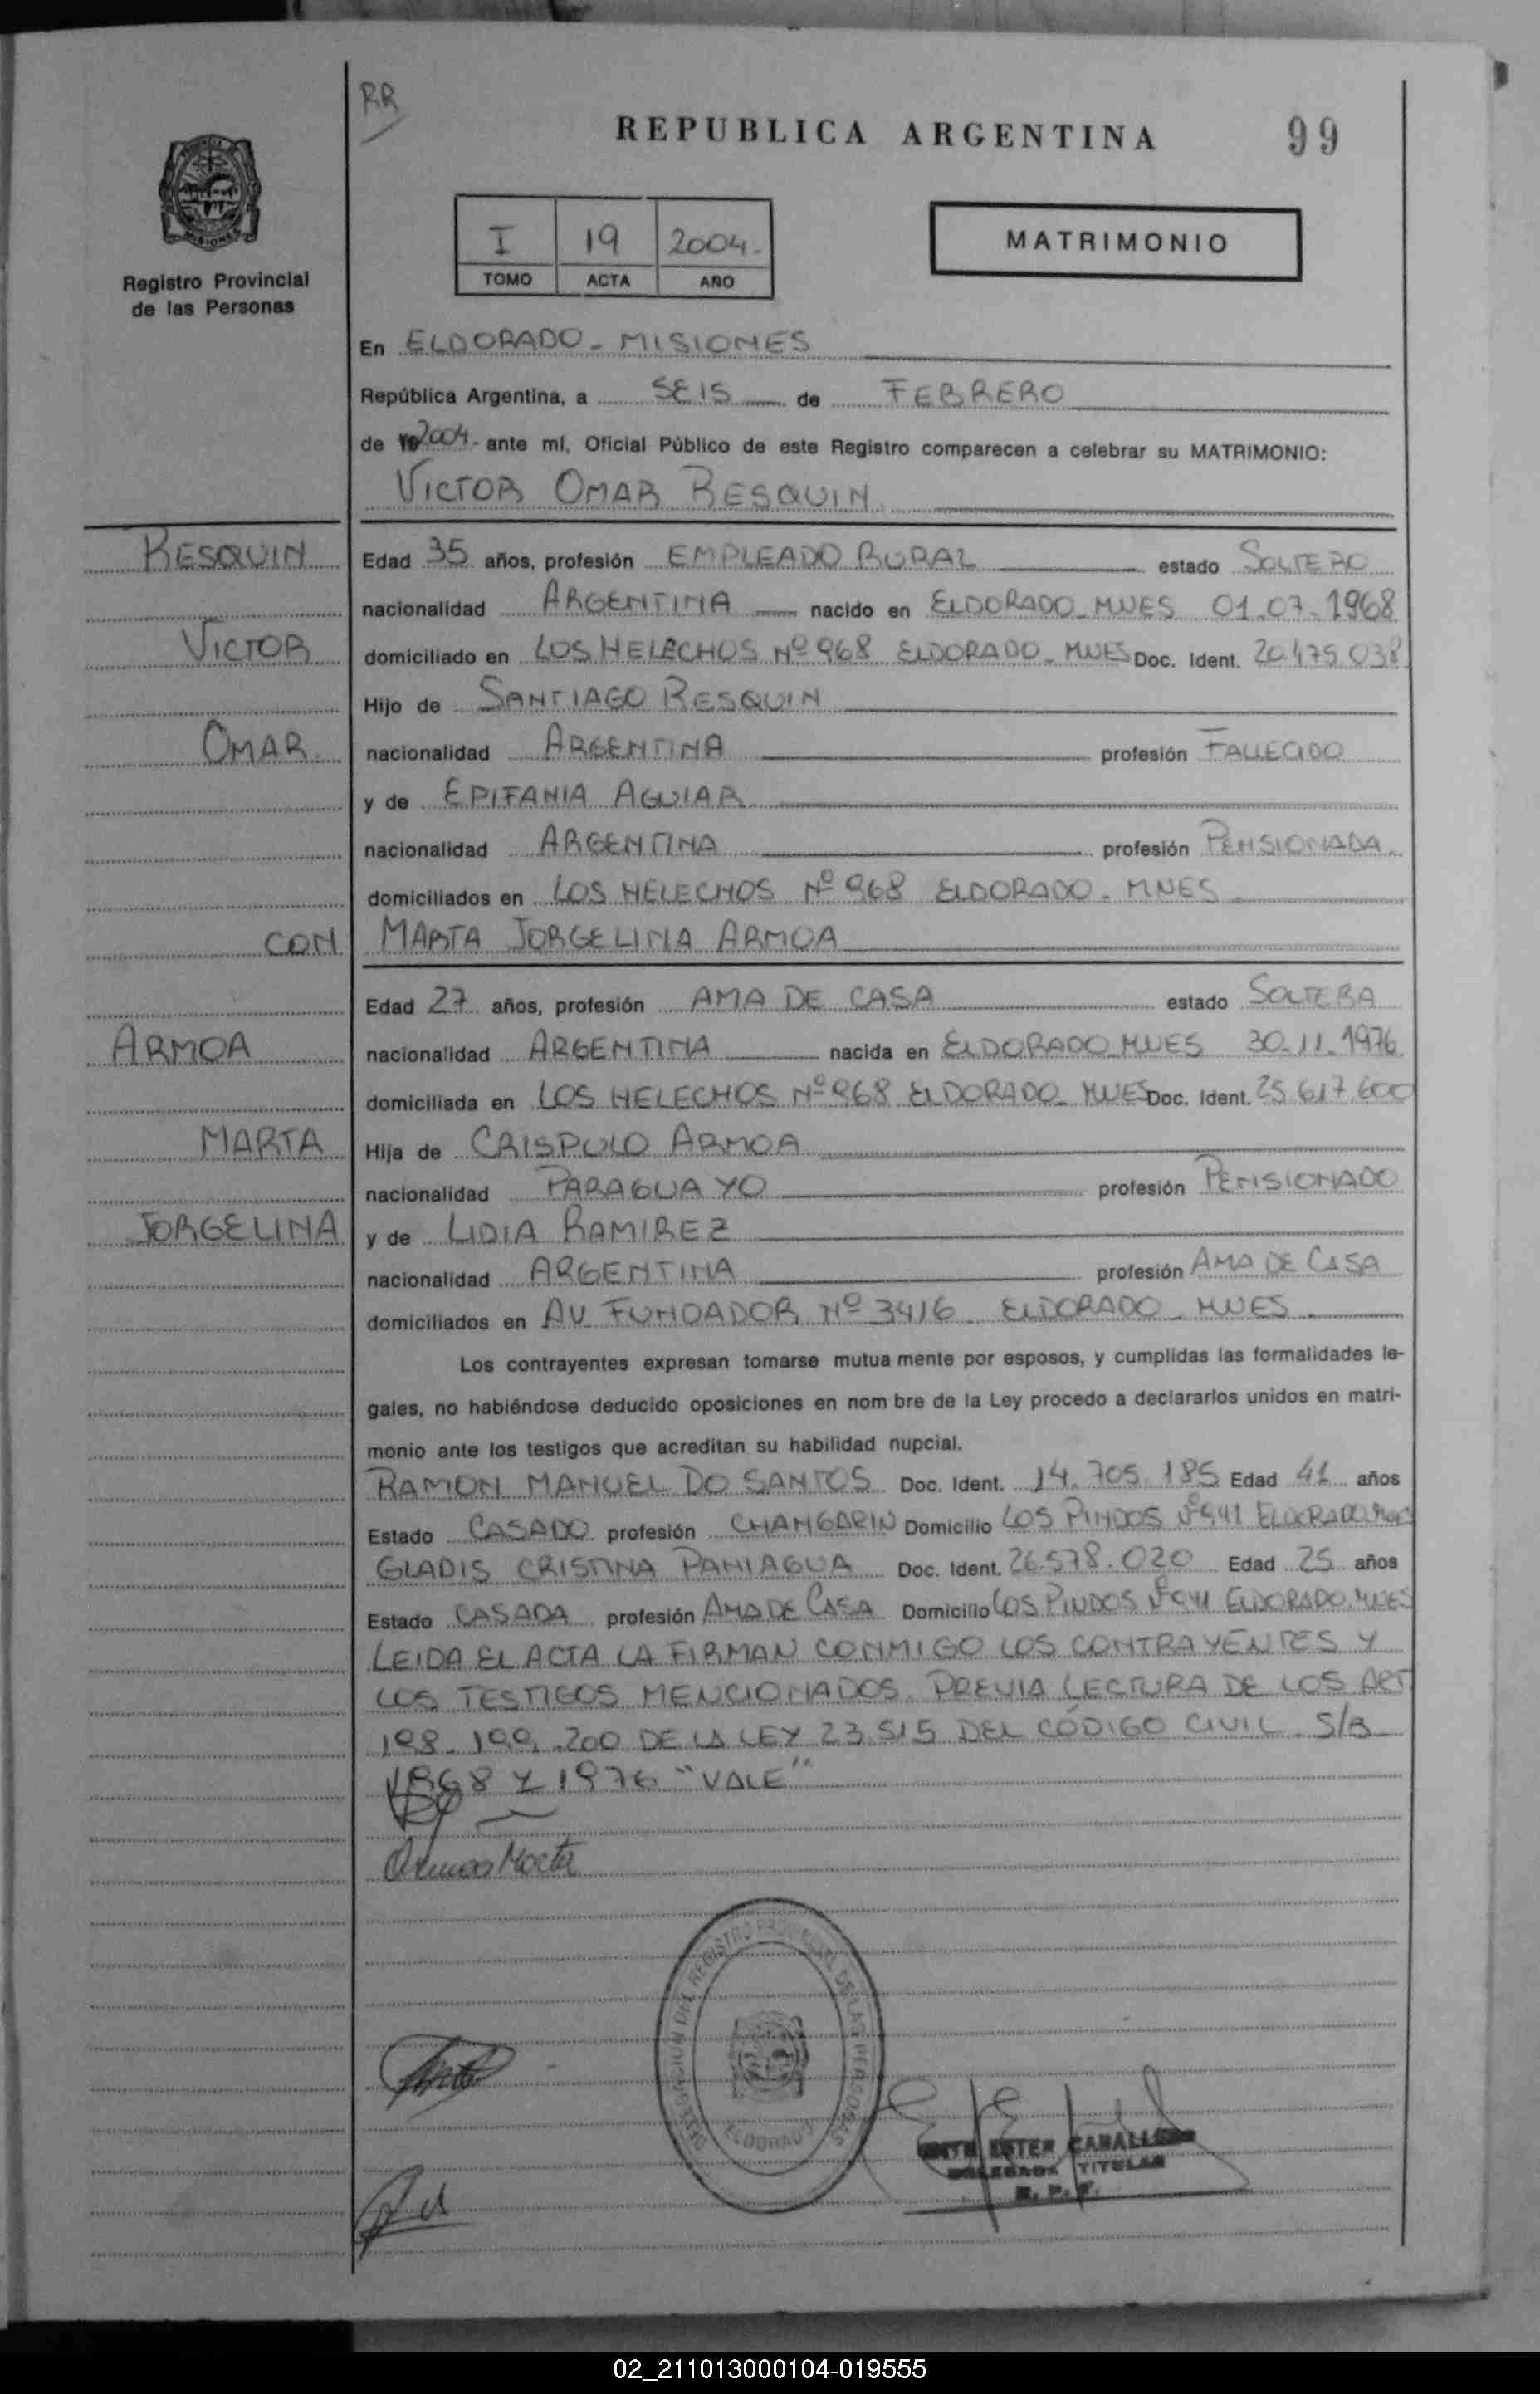 RR
REPUBLICA ARGENTINA
99
I
19
2004.
TOMO
ACTA
AÑO
MATRIMONIO
Registro Provincial
de las Personas
En ELDORADO - MISIONES
República Argentina, a SEIS de FEBRERO
de 2004 - ante mí, Oficial Público de este Registro comparecen a celebrar su MATRIMONIO:
VICTOR OMAR RESQUIN
RESQUIN
Edad 35 años, profesión EMPLEADO RURAL estado SOLTERO
nacionalidad ARGENTINA nacido en ELDORADO - MNES 01.07.1968
VICTOR
domiciliado en LOS HELECHOS Nº 968 ELDORADO - MNES Doc. Ident. 20.475.038
Hijo de SANTIAGO RESQUIN
OMAR
nacionalidad ARGENTINA profesión FALLECIDO
y de EPIFANIA AGUIAR
nacionalidad ARGENTINA profesión PENSIONADA
domiciliados en LOS HELECHOS Nº 968 ELDORADO - MNES
CON
MARTA JORGELINA ARMOA
Edad 27 años, profesión AMA DE CASA estado SOLTERA
ARMOA
nacionalidad ARGENTINA nacida en ELDORADO MNES 30.11.1976
domiciliada en LOS HELECHOS Nº 968 ELDORADO - MNES Doc. Ident. 25.617.600
MARTA
Hija de CRISPULO ARMOA
nacionalidad PARAGUAYO profesión PENSIONADO
JORGELINA
y de LIDIA RAMIREZ
nacionalidad ARGENTINA profesión AMA DE CASA
domiciliados en AV FUNDADOR Nº 3416 ELDORADO - MNES
Los contrayentes expresan tomarse mutua mente por esposos, y cumplidas las formalidades le-
gales, no habiéndose deducido oposiciones en nom bre de la Ley procedo a declararlos unidos en matri-
monio ante los testigos que acreditan su habilidad nupcial.
RAMON MANUEL DO SANTOS Doc. Ident. 14.705.185 Edad 41 años
Estado CASADO profesión CHANGARIN Domicilio LOS PINDOS Nº 941 ELDORADO
GLADIS CRISTINA PANIAGUA Doc. Ident. 26.578.020 Edad 25 años
Estado CASADA profesión AMA DE CASA Domicilio LOS PINDOS Nº 941 ELDORADO. MNES
LEIDA EL ACTA LA FIRMAN CONMIGO LOS CONTRAYENTES Y
LOS TESTIGOS MENCIONADOS. PREVIA LECTURA DE LOS ART
198 - 199 - 200 DE LA LEY 23.515 DEL CÓDIGO CIVIL. S/B
1968 Y 1976 "VALE"
Armoa Marta
DELEGACION DEL REGISTRO PROVINCIAL DE LAS PERSONAS
ELDORADO
ESTER CABALLERO
DELEGADA TITULAR
02_211013000104-019555